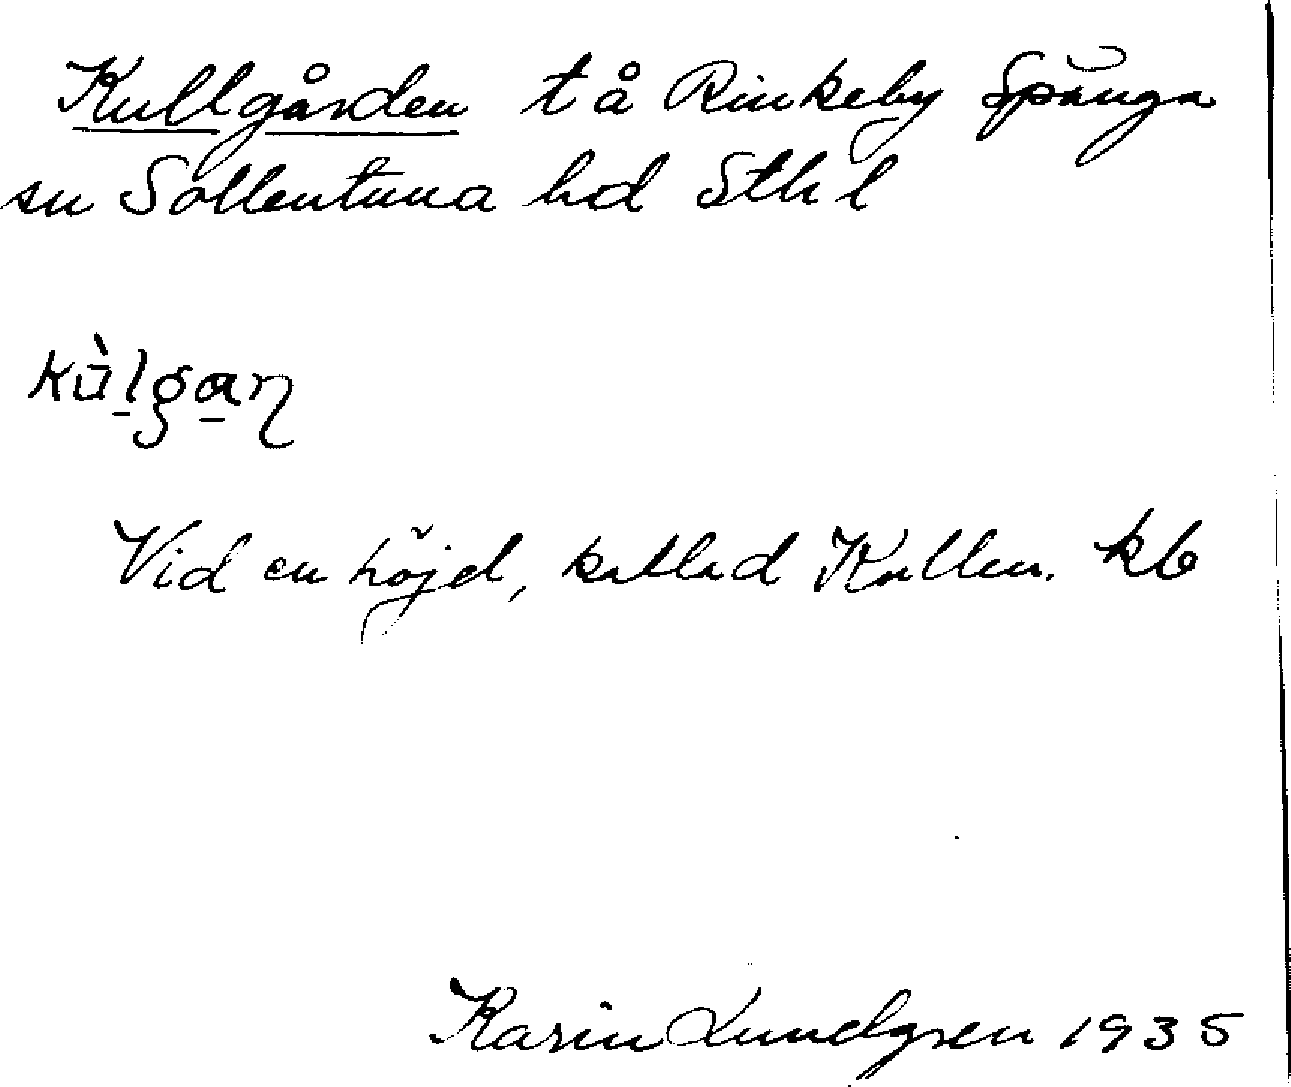 Kullgården t å Rinkeby Spånga
sn Sollentuna hd Sth l
kùlgan
Vid en höjd, kallad Kullen. kb
Karin Lundgren 1935